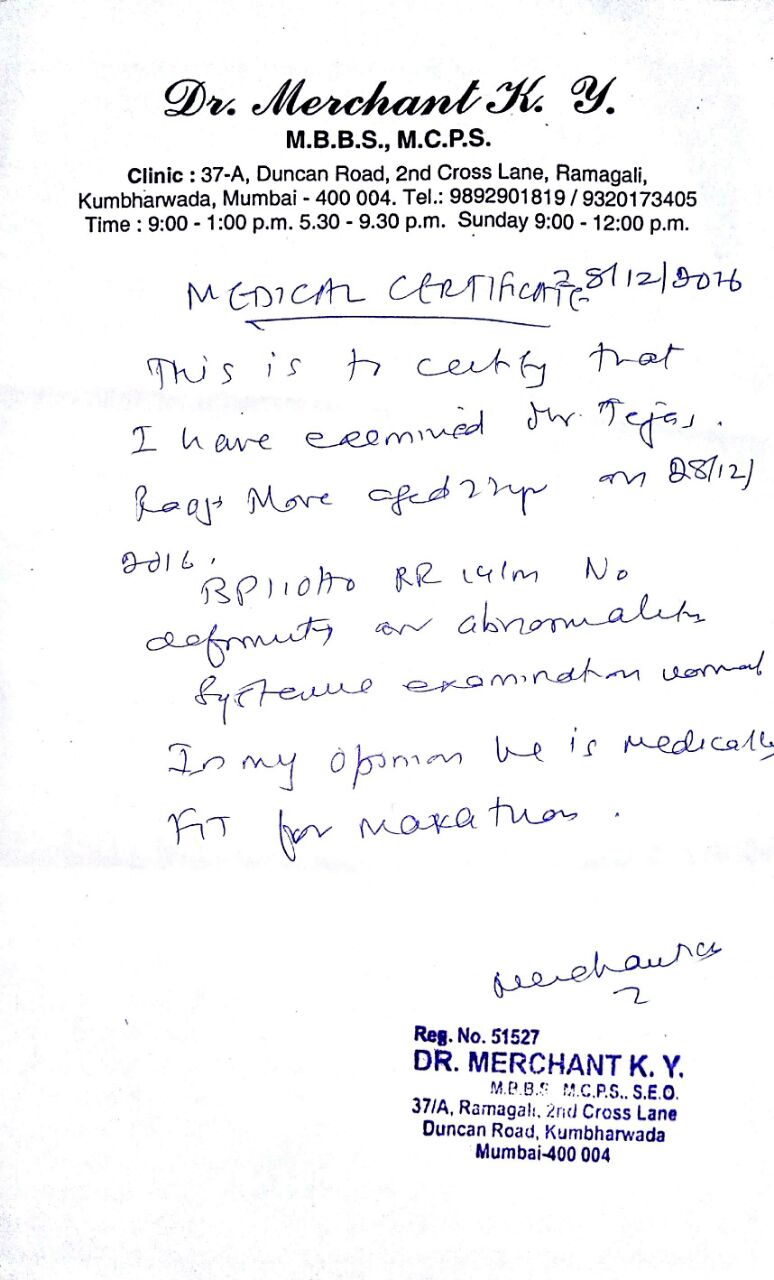 Dr. Merchant K. Y.
M.B.B.S., M.C.P.S.
Clinic : 37-A, Duncan Road, 2nd Cross Lane, Ramagali,
Kumbharwada, Mumbai - 400 004. Tel.: 9892901819 / 9320173405
Time : 9:00 - 1:00 p.m. 5.30 - 9.30 p.m. Sunday 9:00 - 12:00 p.m.
28/12/2016
MEDICAL CERTIFICATE
This is to certify that
I have examined Mr. Tejas
More aged on 28/12/
2016.
BP RR No
deformity or abnormality
Systemic examination normal
In my opinion he is medically
FIT for marathon.
Reg. No. 51527
DR. MERCHANT K. Y.
M.B.B.S M.C.P.S.. S.E.O.
37/A, Ramagali, 2nd Cross Lane
Duncan Road, Kumbharwada
Mumbai-400 004